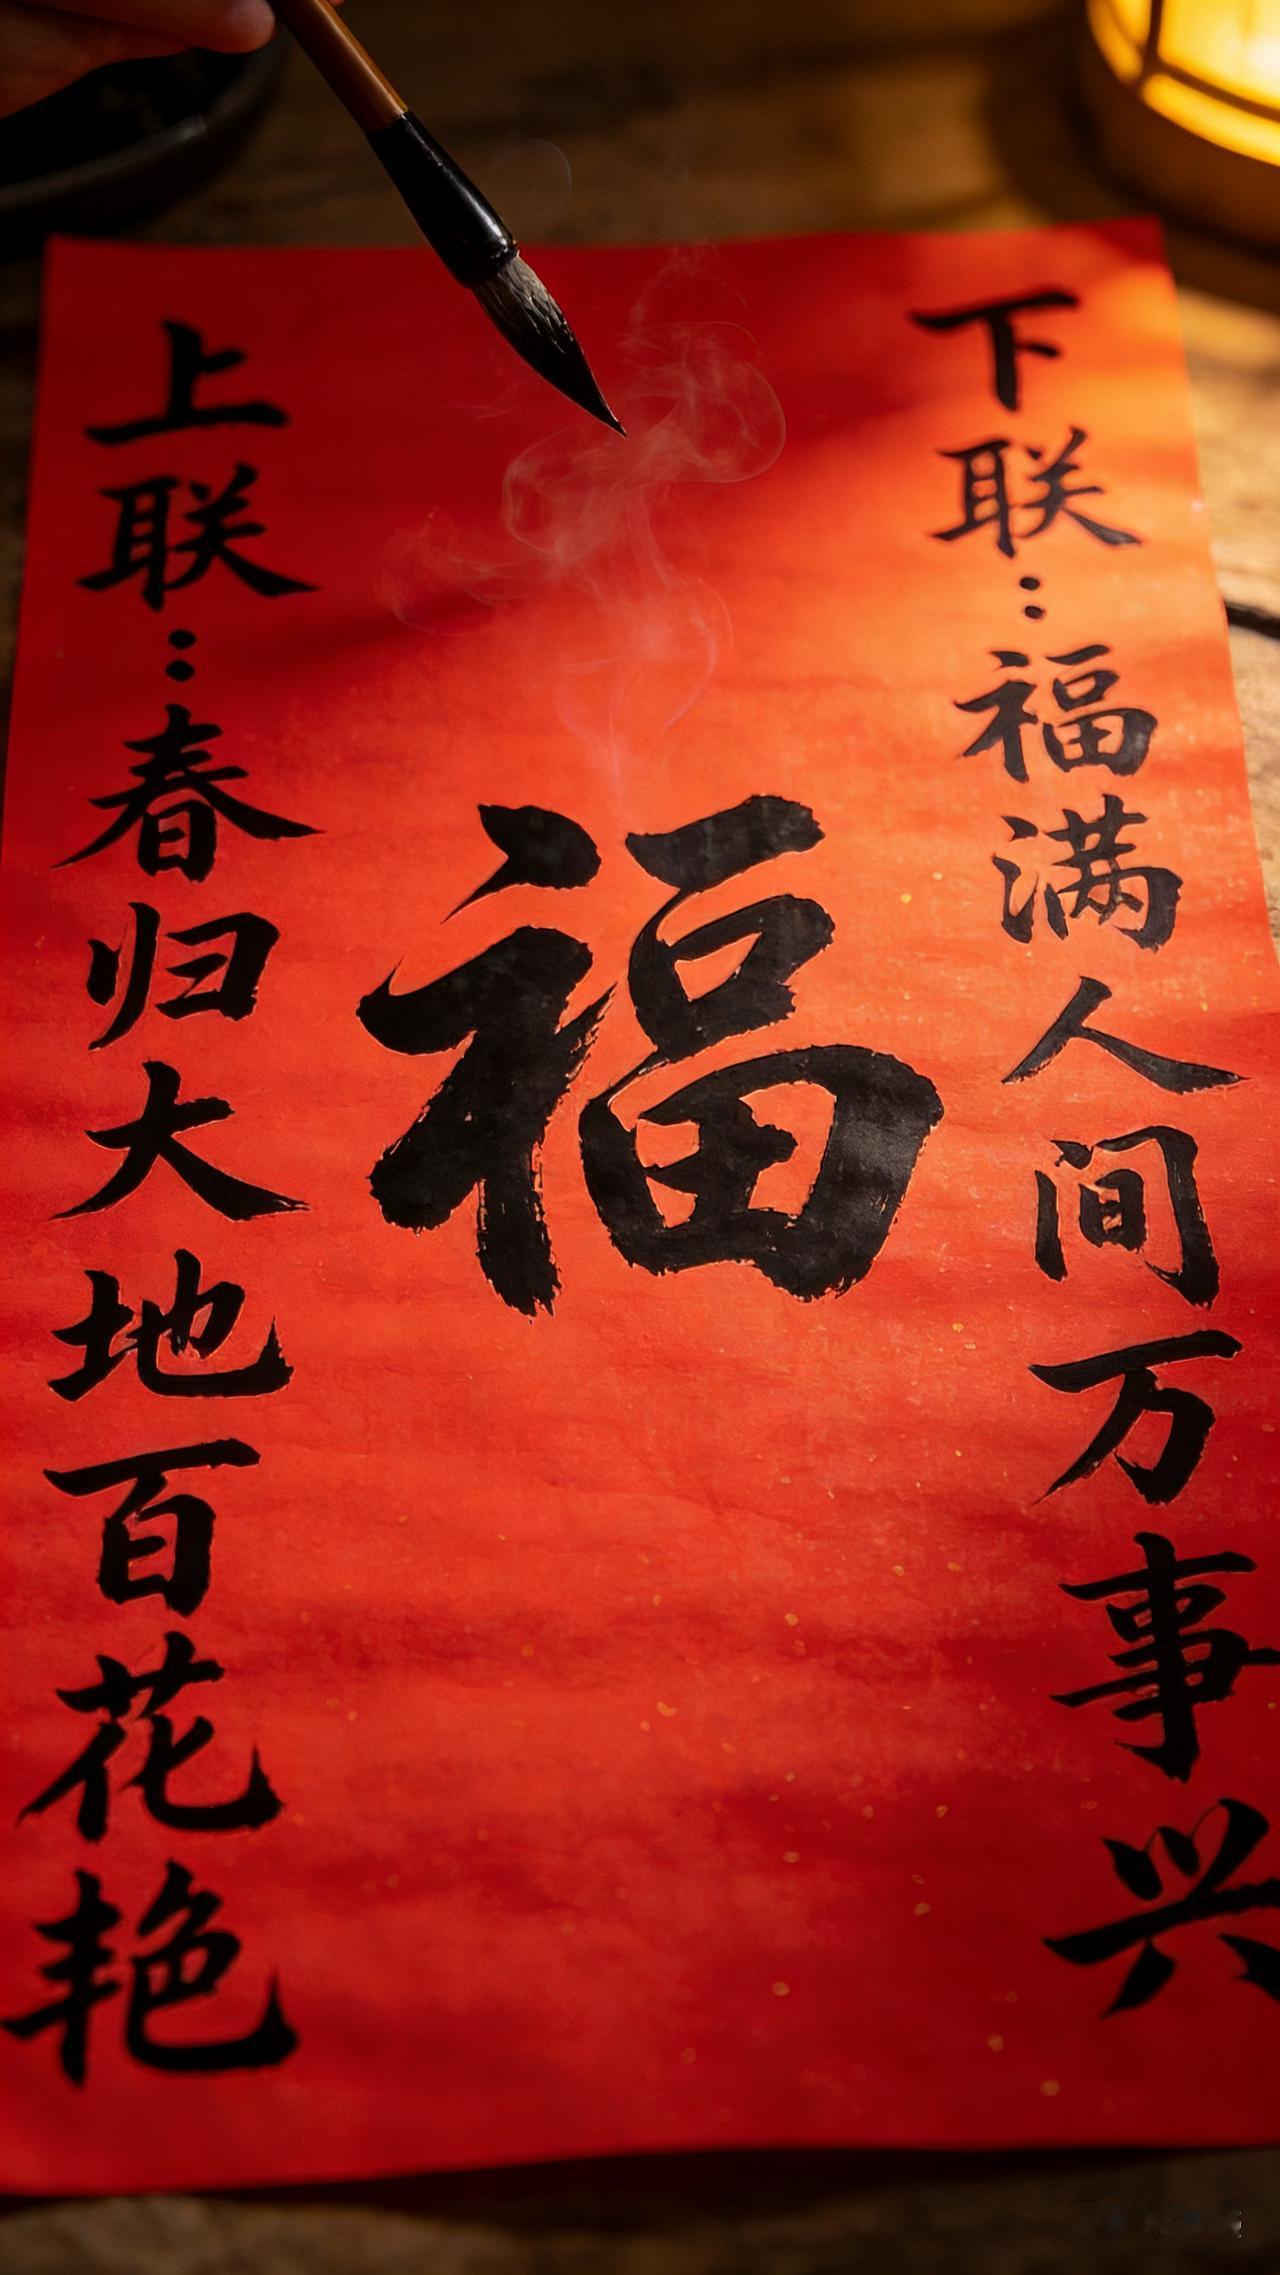 上联：春归大地百花艳
福
下联：福满人间万事兴